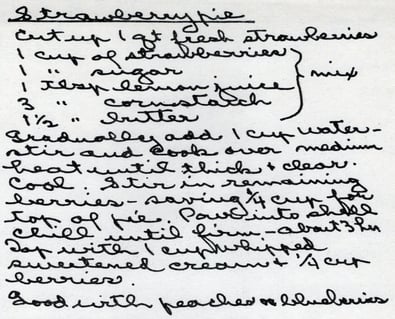 Strawberry pie
Cut up 1 qt fresh strawberries
1 cup of strawberries
1 " sugar
1 tbsp lemon juice } mix
3 " cornstarch
1 1/2 " butter
Gradually add 1 cup water-
stir and cook over medium
heat until thick & clear.
Cool. Stir in remaining
berries - saving 1/4 cup for
top of pie. Pour into shell
Chill until firm - about 3 hrs
Top with 1 cup whipped
sweetened cream & 1/4 cup
berries.
Good with peaches or blueberries